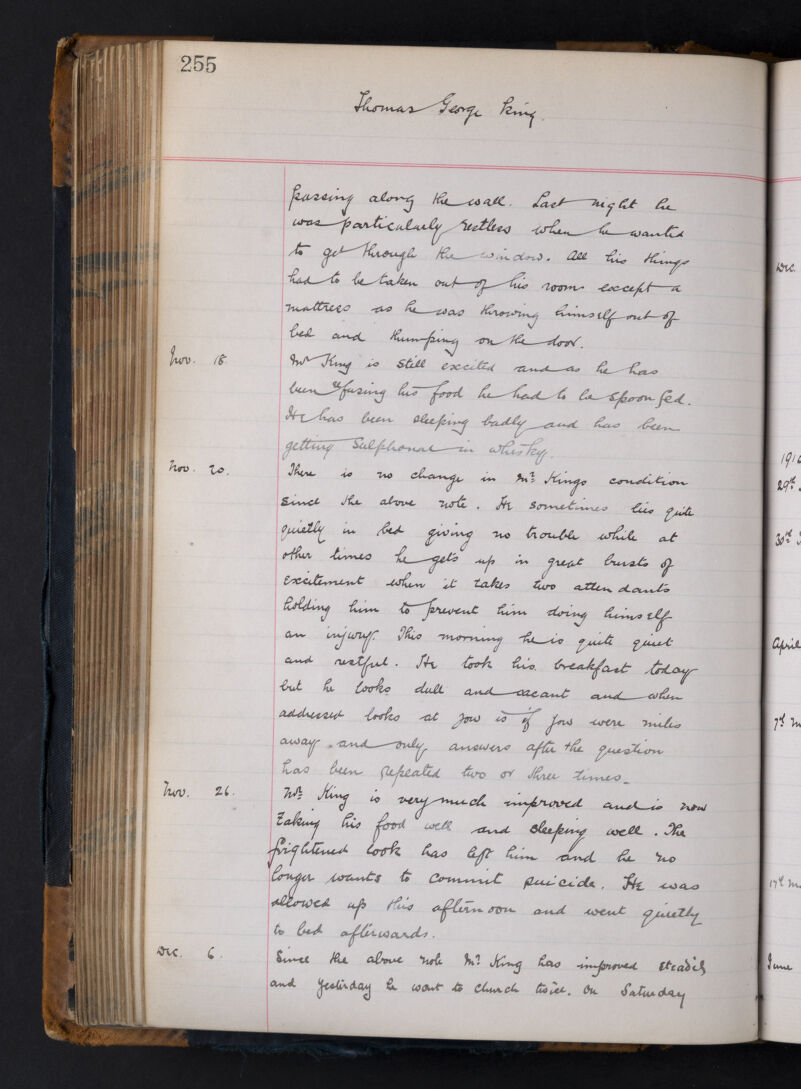 255
Thomas George King.
passing along the wall. Last night he
was particularly restless when he wanted
to get through the window. All his things
had to be taken out of his room except a
mattress as he was throwing himself out of
bed and thumping on the door.
Nov. 18 Mr King is still excited and as he has
been refusing his food he had to be spoon fed.
He has been sleeping badly and has been
getting Sulphonal in whisky.
Nov. 20. There is no change in Mr. Kings condition
since the above note. He sometimes lies quite
quietly in bed giving no trouble while at
other times he gets up in great bursts of
excitement when it takes two attendants
holding him to prevent him doing himself
an injury. This morning he is quite quiet
and restful. He took his breakfast today
but he looks dull and vacant and when
addressed looks at you as if you were miles
away and only answers after the question
has been repeated two or three times.
Nov. 26. Mr. King is very much improved and is now
taking his food well and sleeping well. The
frightened look has left him and he no
longer wants to commit suicide. He was
allowed up this afternoon and went quietly
to bed afterwards.
Dec. 6. Since the above note Mr. King has improved steadily
and yesterday he went to church twice. On Saturday
Dec.
191
29th
30th
April
7th
17th
June